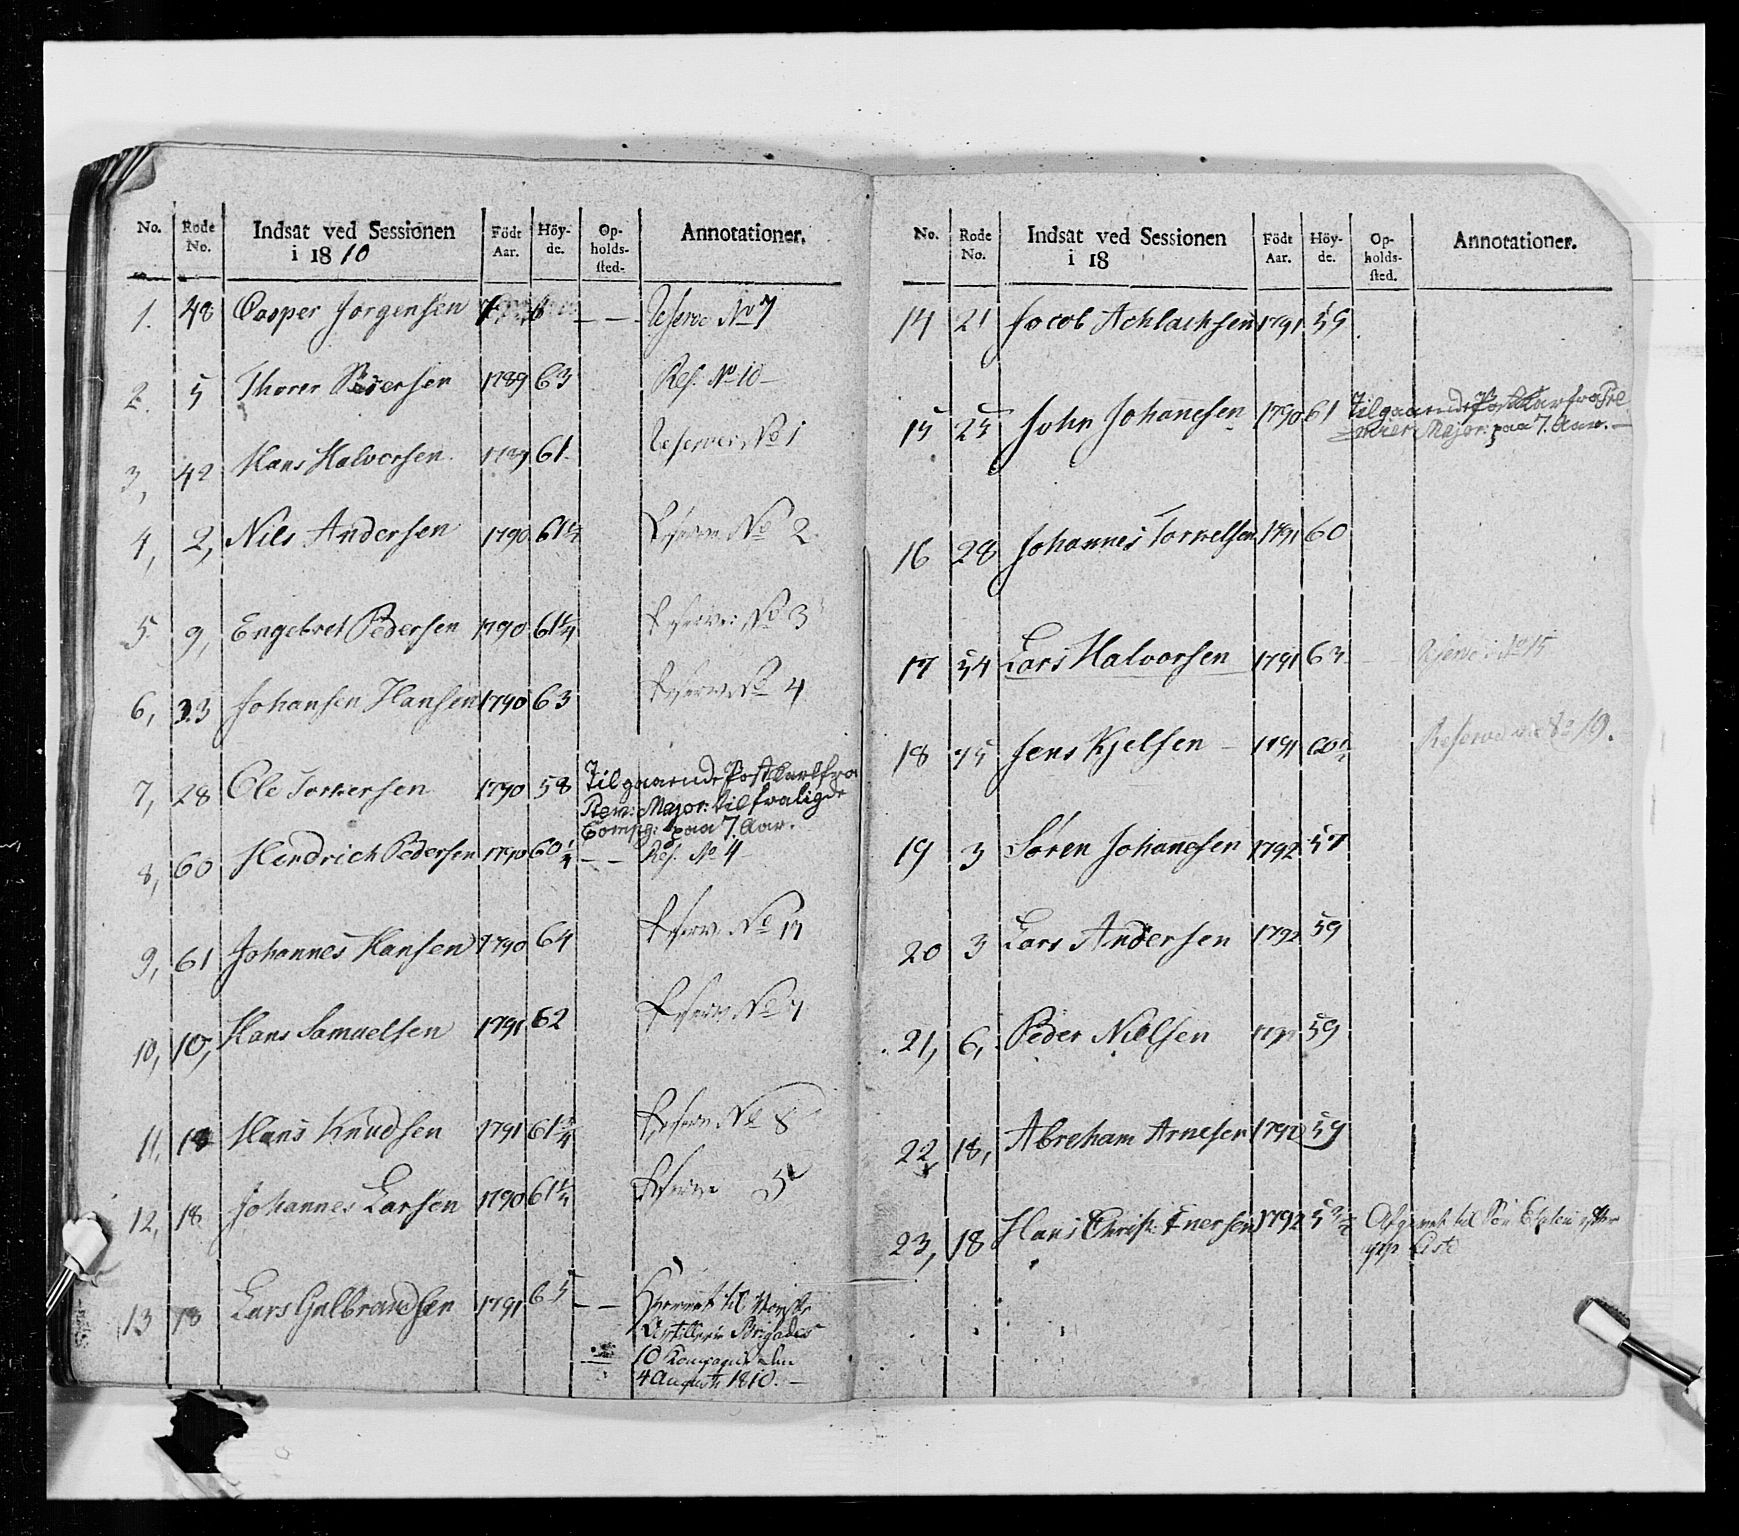 No. Rode No. Indsat ved Sessionen i 1810 Födt Aar. Höy-de. Op-holds-sted. Annotationer.
1. 48 Casper Jörgensen Reserve No 7
2. 5 Thorer Pedersen 1789 63 Res. No 10
3, 42 Hans Halvorsen 1789 61. Reserve No 1
4, 2, Nils Andersen 1790 61 1/4 Reserve No 2
5 9, Engebret Pedersen 1790 61 1/4 Reserve No 3
6, 33 Johansen Hansen 1790 63 Reserve No 4
7, 28 Ole Torkersen 1790 58 Tilgaaende Postkarl fra
Rev: Major: til fraligde
Compg: paa 7. Aar.
8, 60 Hendrich Pedersen 1790 60 1/4 — — Res. No 4
9, 61 Johannes Hansen 1790 64 Reserv. No
10, 10, Hans Samuelsen 1791 62 Reserve No 7
11, 18 Hans Knudsen 1791 61 3/4 Reserve No 8
12, 18 Johannes Larsen 1790 61 1/4 Reserve 5
13 18 Lars Gulbrandsen 1791 65 — — til Norske
Artillerie Brigades
10 Kompagnie den
4 August 1810. —
No. Rode No. Indsat ved Sessionen i 18 Födt Aar. Höy-de. Op-holds-sted. Annotationer.
14 21 Jocob Achlachsen 1791 59
15 25 John Johannesen 1790 61 Tilgaaende Postkar fra
Major: paa 7. Aar. —
16 28 Johannes Torkelsen 1791 60
17 54 Lars Halvorsen 1791 63 Reserve No 15
18 75 Jens Kjelsen — 1791 60 1/2 Reserve No 19.
19 3 Sören Johannesen 1792 57
20 3 Lars Andersen 1792 59
21, 6, Peder Nielsen 59
22, 18, Abreham Arnesen 1792 59
23, 18 Hans Christ: Enersen 1792 59 1/2 Afgivet til Söe Etaten efter
Liste